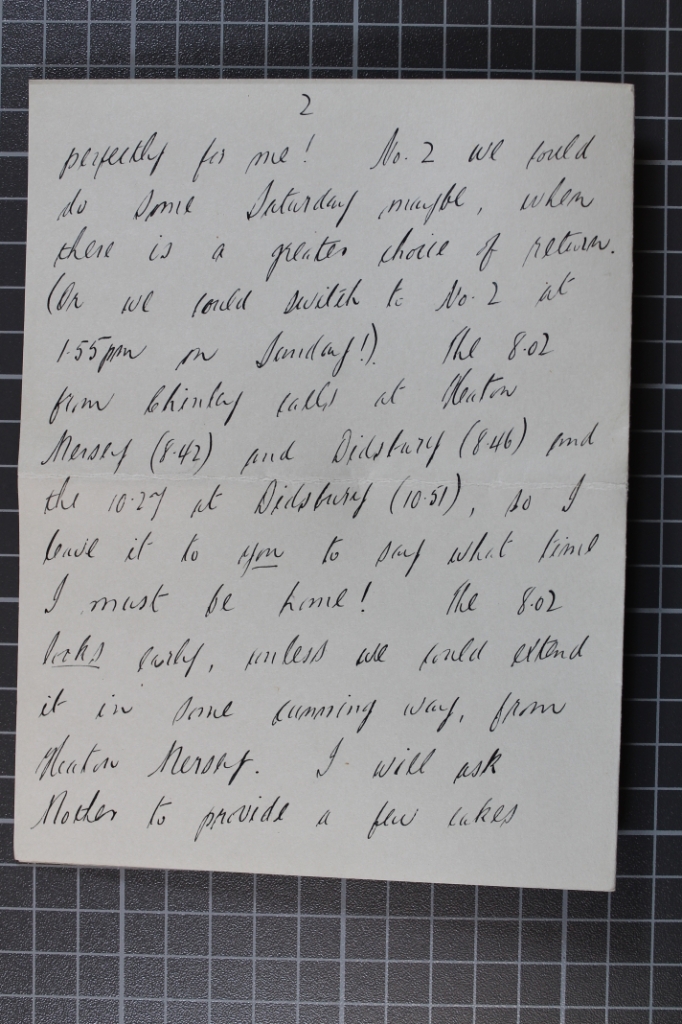 2
perfectly for me! No. 2 we could
do some Saturday maybe, when
there is a greater choice of return.
(Or we could switch to No. 2 at
1.55pm on Sunday!). The 8.02
from Chinley calls at Heaton
Mersey (8.42) and Didsbury (8.46) and
the 10.27 at Didsbury (10.51), so I
leave it to you to say what time
I must be home! The 8.02
looks early, unless we could extend
it in some cunning way, from
Heaton Mersey. I will ask
Mother to provide a few cakes